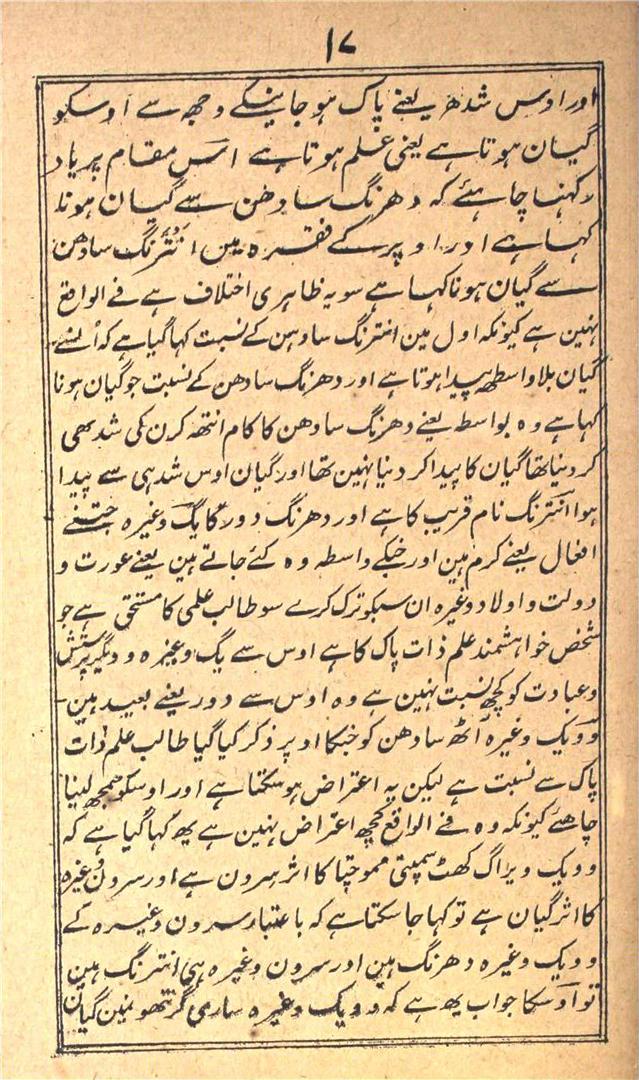 ۱۷
اور اوس شدھ یعنے پاک ہو جاینیکے وجھ سے اوسکو
گیان ہوتا ہے یعنی علم ہوتا ہے اس مقام پر یاد
رکہنا چاہئے کہ دھرنگ سادھن سے گیان ہونا
کہا ہے اور اوپر کے فقرہ مین انترنگ سادھن
سے گیان ہونا کہا ہے سو یہ ظاہری اختلاف ہے فے الواقع
نہین ہے کیونکہ اول مین انترنگ سادہن کے نسبت کہا گیا ہے کہ اُسنے
گیان بلا واسطہ پیدا ہوتا ہے اور دھرنگ سادھن کے نسبت جو گیان ہونا
کہا ہے وہ بواسطہ یعنے دھرنگ سادھن کا کام انتھ کرن کی شدھی
کر دینا تھا گیان کا پیدا کر دینا نہین تھا اور گیان اوس شدہی سے پیدا
ہوا انترنگ نام قریب کا ہے اور دھرنگ دور کا یگ وغیرہ جتنے
افعال یعنے کرم ہین اور جنکے واسطہ وہ کئے جاتے ہین یعنے عورت و
دولت و اولاد وغیرہ ان سبکو ترک کرے سو طالب علمی کا مستحق ہے جو
شخص خواہشمند علم ذات پاک کا ہے اوس سے یگ وغیرہ و دیگر پرستش
و عبادت کو کچھ نسبت نہین ہے وہ اوس سے دور یعنے بعید ہین
وویک وغیرہ آٹھ سادھن کو جنکا اوپر ذکر کیا گیا طالب علم ذات
پاک سے نسبت ہے لیکن یہ اعتراض ہو سکتا ہے اور اوسکو سمجھ لینا
چاھئے کیونکہ وہ فے الواقع کچھ اعتراض نہین ہے یھ کہا گیا ہے کہ
وویک ویراگ کھٹ سمپتی مموچتا کا اثر سرون ہے اور سرون وغیرہ
کا اثر گیان ہے تو کہا جا سکتا ہے کہ باعتبار سرون وغیرہ کے
وویک وغیرہ دھرنگ ہین اور سرون وغیرہ ہی انترنگ ہین
تو اوسکا جواب یھ ہے کہ وویک وغیرہ ساری گرنتھو نمین گیان